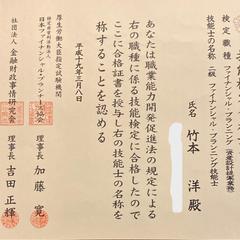 検定職種 ファイナンシャル・プランニング（資産設計提案業務）
技能士の名称 二級 ファイナンシャル・プランニング技能士
氏名 竹本 洋殿
あなたは職業能力開発促進法の規定による
右の職種に係る技能検定に合格したので
ここに合格証書を授与し右の技能士の名称を
称することを認める
平成十九年三月八日
厚生労働大臣指定試験機関
日本ファイナンシャル・プランナーズ協会
理事長 加藤 寛
社団法人 金融財政事情研究会
理事長 吉田 正輝